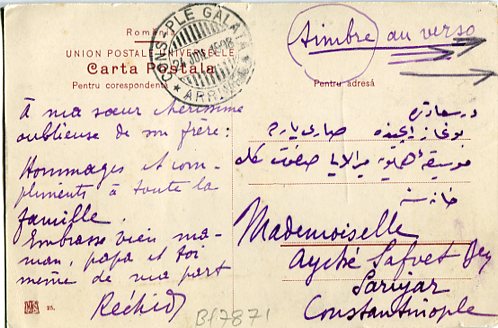 România
UNION POSTALE UNIVERSELLE
Carta Postala
Pentru corespondență
CONSPLE GALATA
ARRIVÉE
Timbre au verso
Pentru adresă
À ma sœur chérissime
oublieuse de son frère:
Hommages et com-
pliments à toute la
famille.
Embrasse bien ma-
man, papa et toi
même de ma part
Réchid
در سعادت
بوغاز ایچنده صاری یارده
Mademoiselle
Ayché Safvet Bey
Sariyar
Constantinople
25.
Bf7871